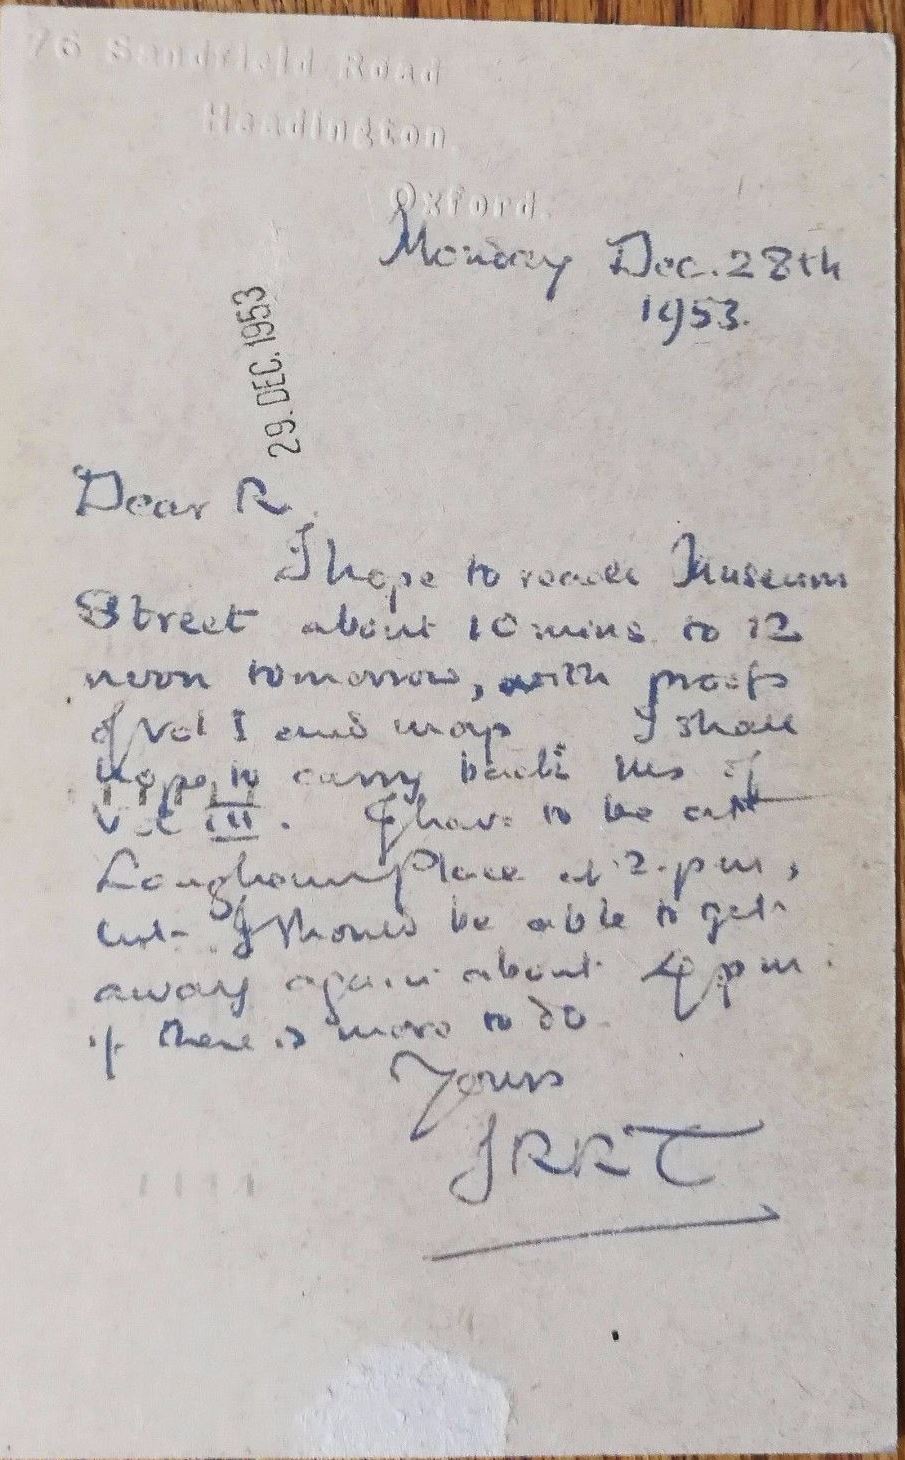 76 Sandfield Road
Headington
Oxford.
Monday Dec. 28th
1953.
29. DEC. 1953
Dear R.
I hope to reach Museum
Street about 10 mins to 12
noon tomorrow, with proofs
of Vol I and map. I shall
hope to carry back MS of
Vol III. I have to be at
Langham Place at 2. pm,
but I should be able to get
away again about 4 pm.
if there is more to do.
Yours
JRRT